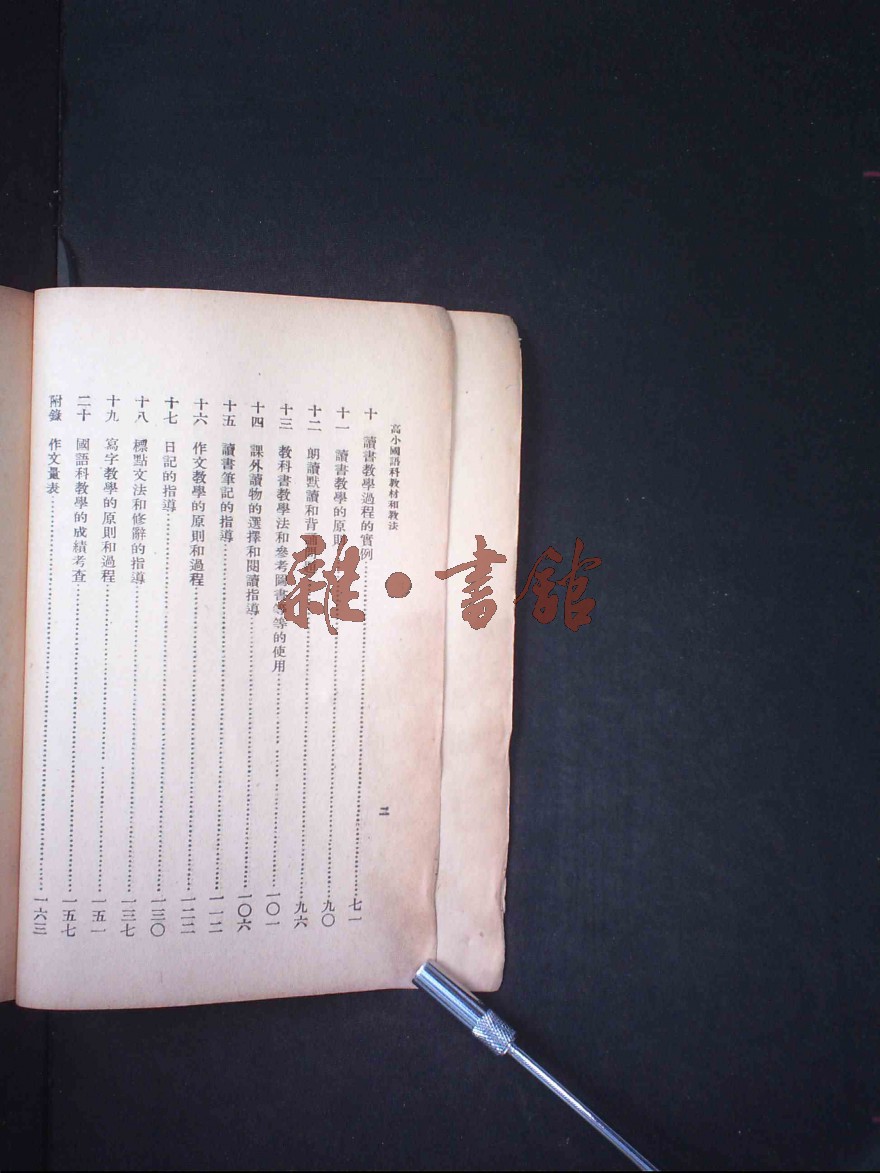 高小國語科教材和教法
二
十 讀書教學過程的實例……七一
十一 讀書教學的原則……九〇
十二 朗讀默讀和背誦……九六
十三 教科書教學法和參考圖書等的使用……一〇一
十四 課外讀物的選擇和閱讀指導……一〇六
十五 讀書筆記的指導……一一二
十六 作文教學的原則和過程……一二二
十七 日記的指導……一三〇
十八 標點文法和修辭的指導……一三七
十九 寫字教學的原則和過程……一五一
二十 國語科教學的成績考查……一五七
附錄 作文量表……一六三
雜·書館